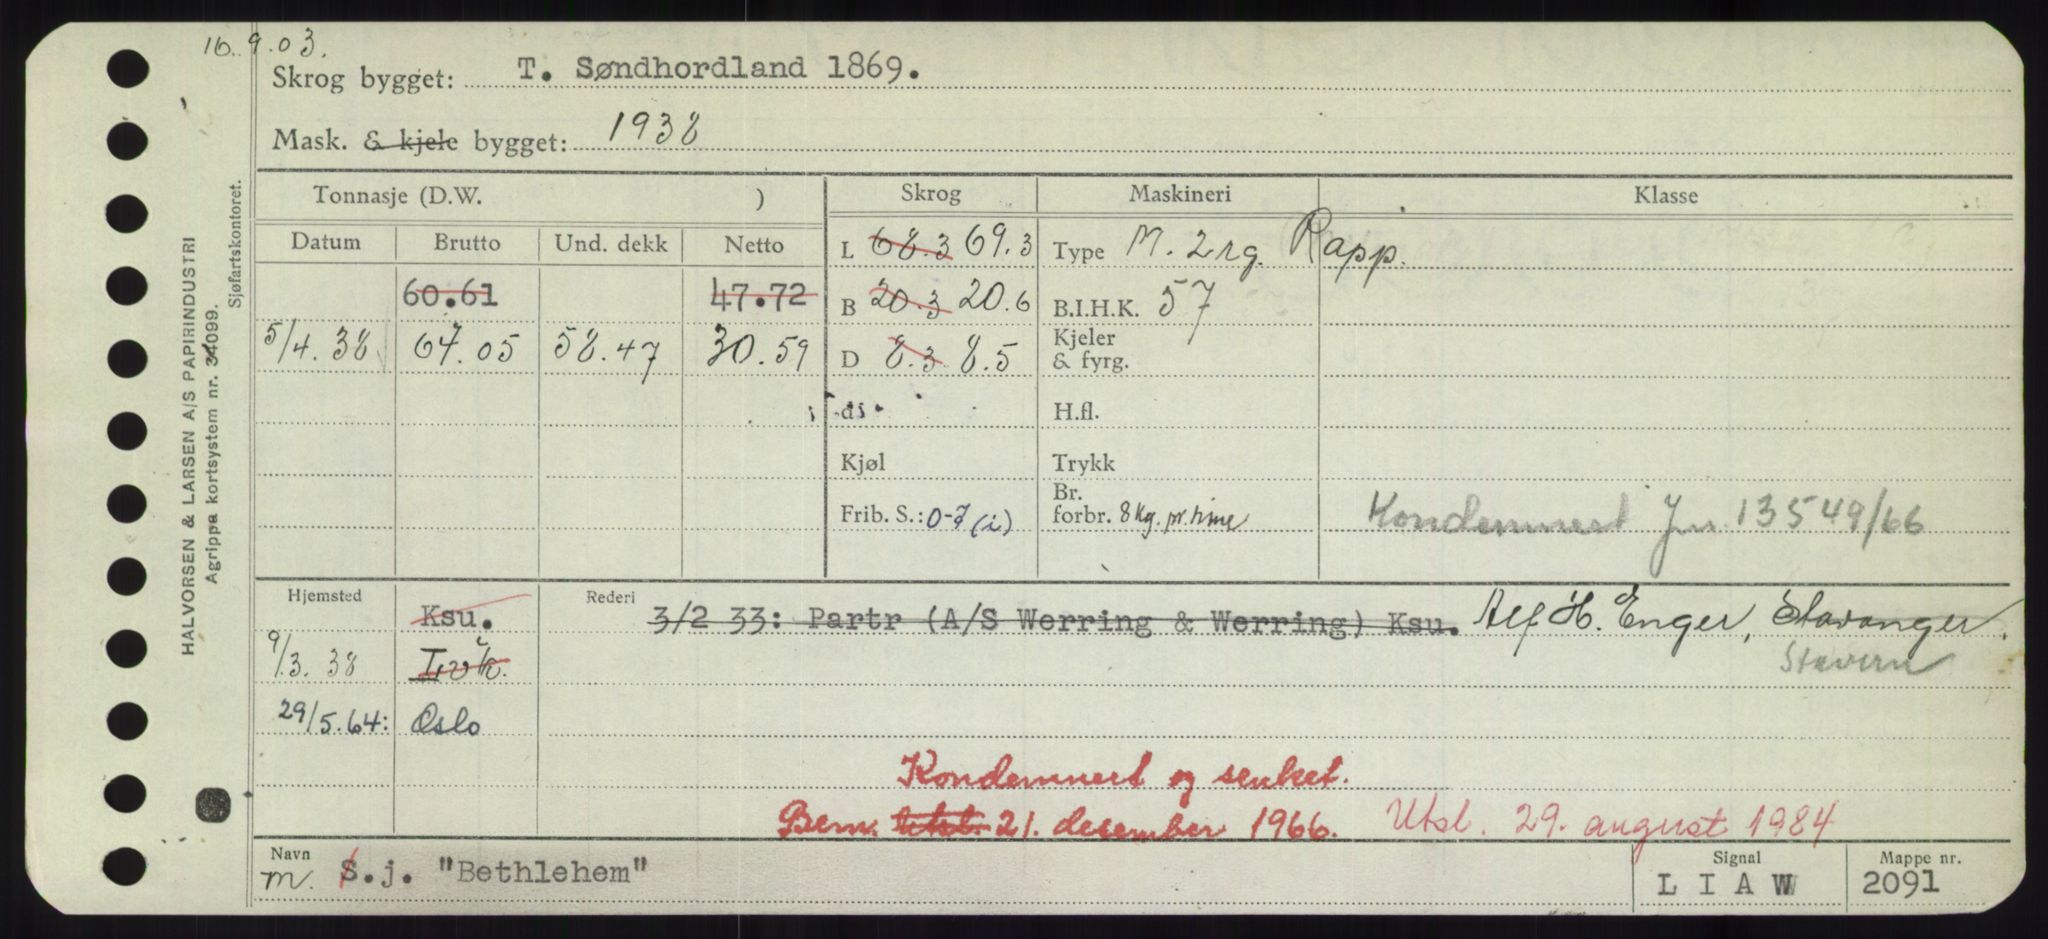 16.9.03.
Skrog bygget: T. Søndhordland 1869.
Mask. & kjele bygget: 1938
Tonnasje (D.W. ) Skrog Maskineri Klasse
Datum Brutto Und. dekk Netto
L 68.3 69.3 Type M. 2 rg. Rapp.
60.61 47.72 B 20.3 20.6 B.I.H.K. 57
5/4.38 67.05 58.47 30.59 D 8.3 8.5 Kjeler & fyrg.
di H.fl.
Kjøl Trykk
Frib. S.: 0-7 (i) Br. forbr. 8 kg. pr. time Kondemnert Jnr. 13549/66
Hjemsted Ksu. Rederi 3/2 33: Partr (A/S Werring & Werring) Ksu. Alf H. Enger, Stavanger.
9/3.38 Stavern
29/5.64: Oslo
Kondemnert og senket.
Bem. 21. desember 1966. Utsl. 29. august 1984
Navn m. S.j. "Bethlehem" Signal L I A W Mappe nr. 2091
HALVORSEN & LARSEN A/S PAPIRINDUSTRI
Agrippa kortsystem nr. 34099.
Sjøfartskontoret.